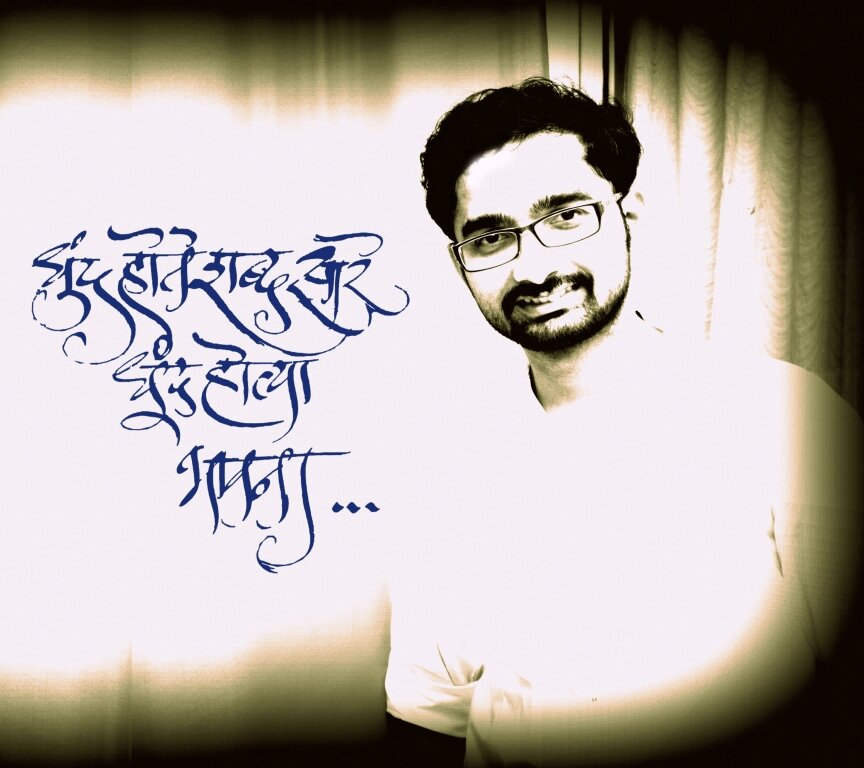 धुंद होते शब्द सारे
धुंद होत्या
भावना ...